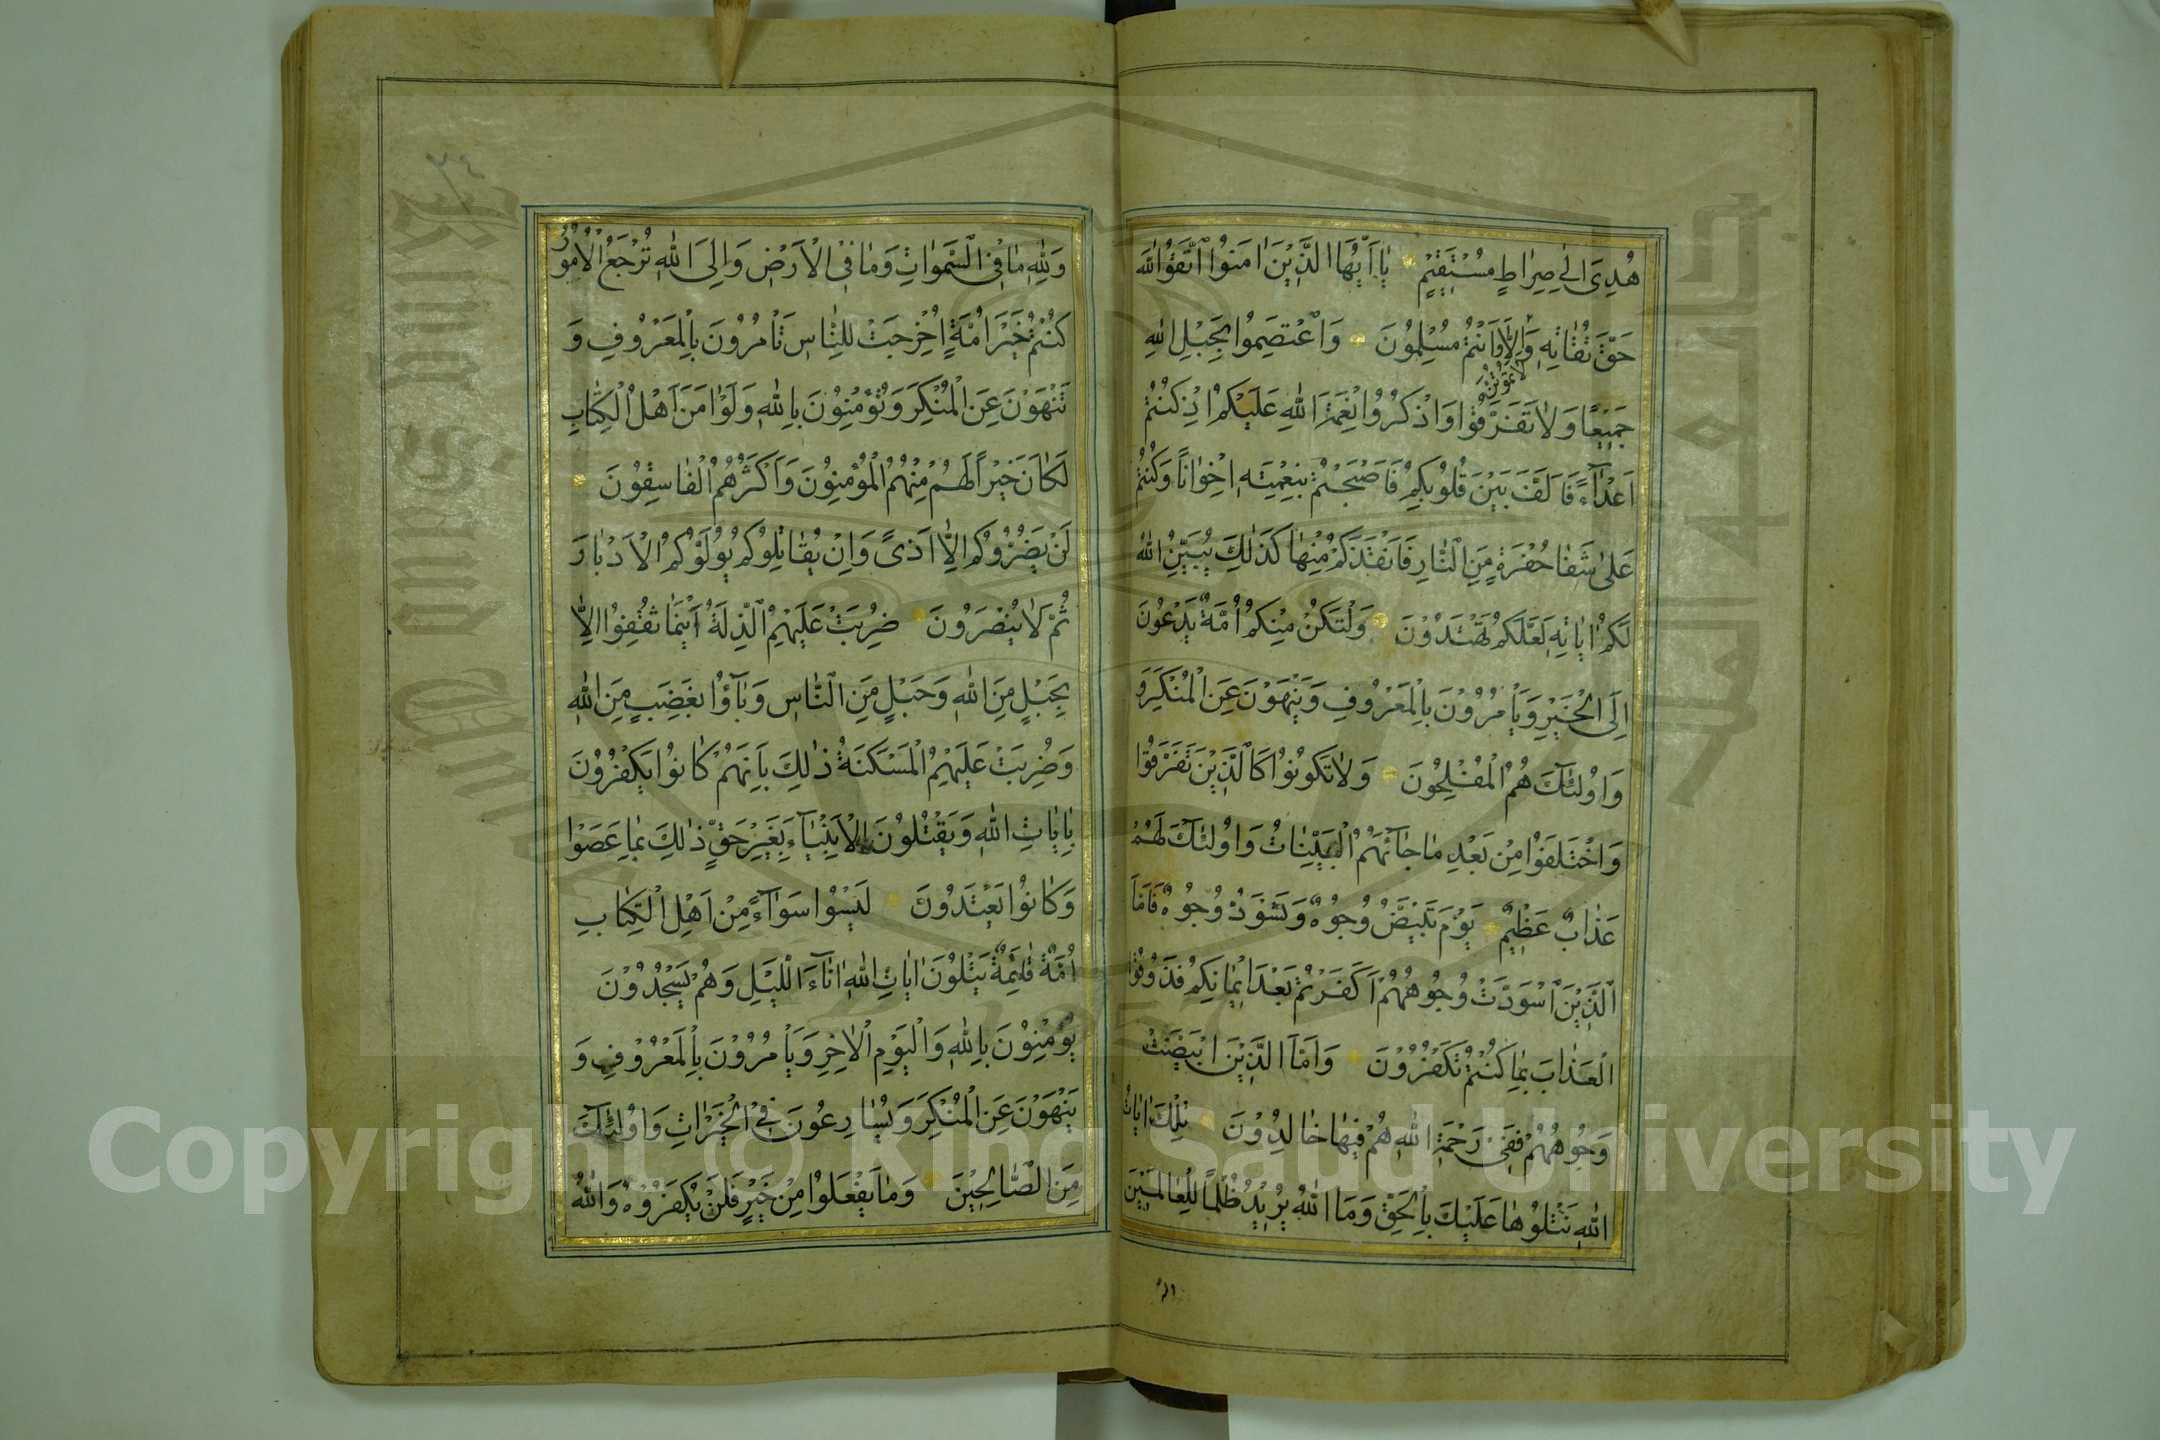 هُدِىَ اِلٰى صِرَاطٍ مُسْتَقِيْمٍ يٰٓا اَيُّهَا الَّذِيْنَ اٰمَنُوا اتَّقُوا اللّٰهَ
حَقَّ تُقٰاتِهٖ وَلاٰ اِلاّٰ وَاَنْتُمْ مُسْلِمُونَ وَاعْتَصِمُوا بِحَبْلِ اللّٰهِ
تَمُوتُنَّ
جَمِيْعًا وَلاٰ تَفَرَّقُوْا وَاذْكُرُوا نِعْمَةَ اللّٰهِ عَلَيْكُمْ اِذْ كُنْتُمْ
اَعْدٰٓاءً فَاَلَّفَ بَيْنَ قُلُوبِكُمْ فَاَصْبَحْتُمْ بِنِعْمَتِهٖ اِخْوٰانًا وَكُنْتُمْ
عَلىٰ شَفٰا حُفْرَةٍ مِنَ النّٰارِ فَاَنْقَذَكُمْ مِنْهٰا كَذٰلِكَ يُبَيِّنُ اللّٰهُ
لَكُمْ اٰيٰاتِهٖ لَعَلَّكُمْ تَهْتَدُوْنَ وَلْتَكُنْ مِنْكُمْ اُمَّةٌ يَدْعُوْنَ
اِلَى الْخَيْرِ وَيَأْمُرُوْنَ بِالْمَعْرُوفِ وَيَنْهَوْنَ عَنِ الْمُنْكَرِ وَ
وَاُولٰٓئِكَ هُمُ الْمُفْلِحُونَ وَلاٰ تَكُونُوا كَالَّذِيْنَ تَفَرَّقُوْا
وَاخْتَلَفُوْا مِنْ بَعْدِ مٰا جٰٓاءَهُمُ الْبَيِّنٰاتُ وَاُولٰٓئِكَ لَهُمْ
عَذٰابٌ عَظِيْمٌ يَوْمَ تَبْيَضُّ وُجُوْهٌ وَتَسْوَدُّ وُجُوْهٌ فَاَمَّا
الَّذِيْنَ اسْوَدَّتْ وُجُوْهُهُمْ اَكَفَرْتُمْ بَعْدَ اِيْمٰانِكُمْ فَذُوْقُوْا
الْعَذٰابَ بِمٰا كُنْتُمْ تَكْفُرُوْنَ وَاَمَّا الَّذِيْنَ ابْيَضَّتْ
وُجُوْهُهُمْ فَفِىْ رَحْمَةِ اللّٰهِ هُمْ فِيْهٰا خٰالِدُوْنَ تِلْكَ اٰيٰاتُ
اللّٰهِ نَتْلُوْهٰا عَلَيْكَ بِالْحَقِّ وَمَا اللّٰهُ يُرِيْدُ ظُلْمًا لِلْعٰالَمِيْنَ
وَلِلّٰهِ مٰا فِى السَّمٰوٰاتِ وَمٰا فِى الْاَرْضِ وَاِلَى اللّٰهِ تُرْجَعُ الْاُمُوْرُ
كُنْتُمْ خَيْرَ اُمَّةٍ اُخْرِجَتْ لِلنّٰاسِ تَأْمُرُوْنَ بِالْمَعْرُوفِ وَ
تَنْهَوْنَ عَنِ الْمُنْكَرِ وَتُؤْمِنُوْنَ بِاللّٰهِ وَلَوْ اٰمَنَ اَهْلُ الْكِتٰابِ
لَكٰانَ خَيْرًا لَهُمْ مِنْهُمُ الْمُؤْمِنُوْنَ وَاَكْثَرُهُمُ الْفٰاسِقُوْنَ
لَنْ يَضُرُّوْكُمْ اِلاّٰ اَذىً وَاِنْ يُقٰاتِلُوْكُمْ يُوَلُّوْكُمُ الْاَدْبٰارَ
ثُمَّ لاٰ يُنْصَرُوْنَ ضُرِبَتْ عَلَيْهِمُ الذِّلَّةُ اَيْنَمٰا ثُقِفُوْا اِلاّٰ
بِحَبْلٍ مِنَ اللّٰهِ وَحَبْلٍ مِنَ النّٰاسِ وَبٰٓاؤُا بِغَضَبٍ مِنَ اللّٰهِ
وَضُرِبَتْ عَلَيْهِمُ الْمَسْكَنَةُ ذٰلِكَ بِاَنَّهُمْ كٰانُوْا يَكْفُرُوْنَ
بِاٰيٰاتِ اللّٰهِ وَيَقْتُلُوْنَ الْاَنْبِيٰٓاءَ بِغَيْرِ حَقٍّ ذٰلِكَ بِمٰا عَصَوْا
وَكٰانُوْا يَعْتَدُوْنَ لَيْسُوْا سَوٰٓاءً مِنْ اَهْلِ الْكِتٰابِ
اُمَّةٌ قٰٓائِمَةٌ يَتْلُوْنَ اٰيٰاتِ اللّٰهِ اٰنٰٓاءَ اللَّيْلِ وَهُمْ يَسْجُدُوْنَ
يُؤْمِنُوْنَ بِاللّٰهِ وَالْيَوْمِ الْاٰخِرِ وَيَأْمُرُوْنَ بِالْمَعْرُوْفِ وَ
يَنْهَوْنَ عَنِ الْمُنْكَرِ وَيُسٰارِعُوْنَ فِى الْخَيْرٰاتِ وَاُولٰٓئِكَ
مِنَ الصّٰالِحِيْنَ وَمٰا يَفْعَلُوْا مِنْ خَيْرٍ فَلَنْ يُكْفَرُوْهُ وَاللّٰهُ
Copyright © King Saud University